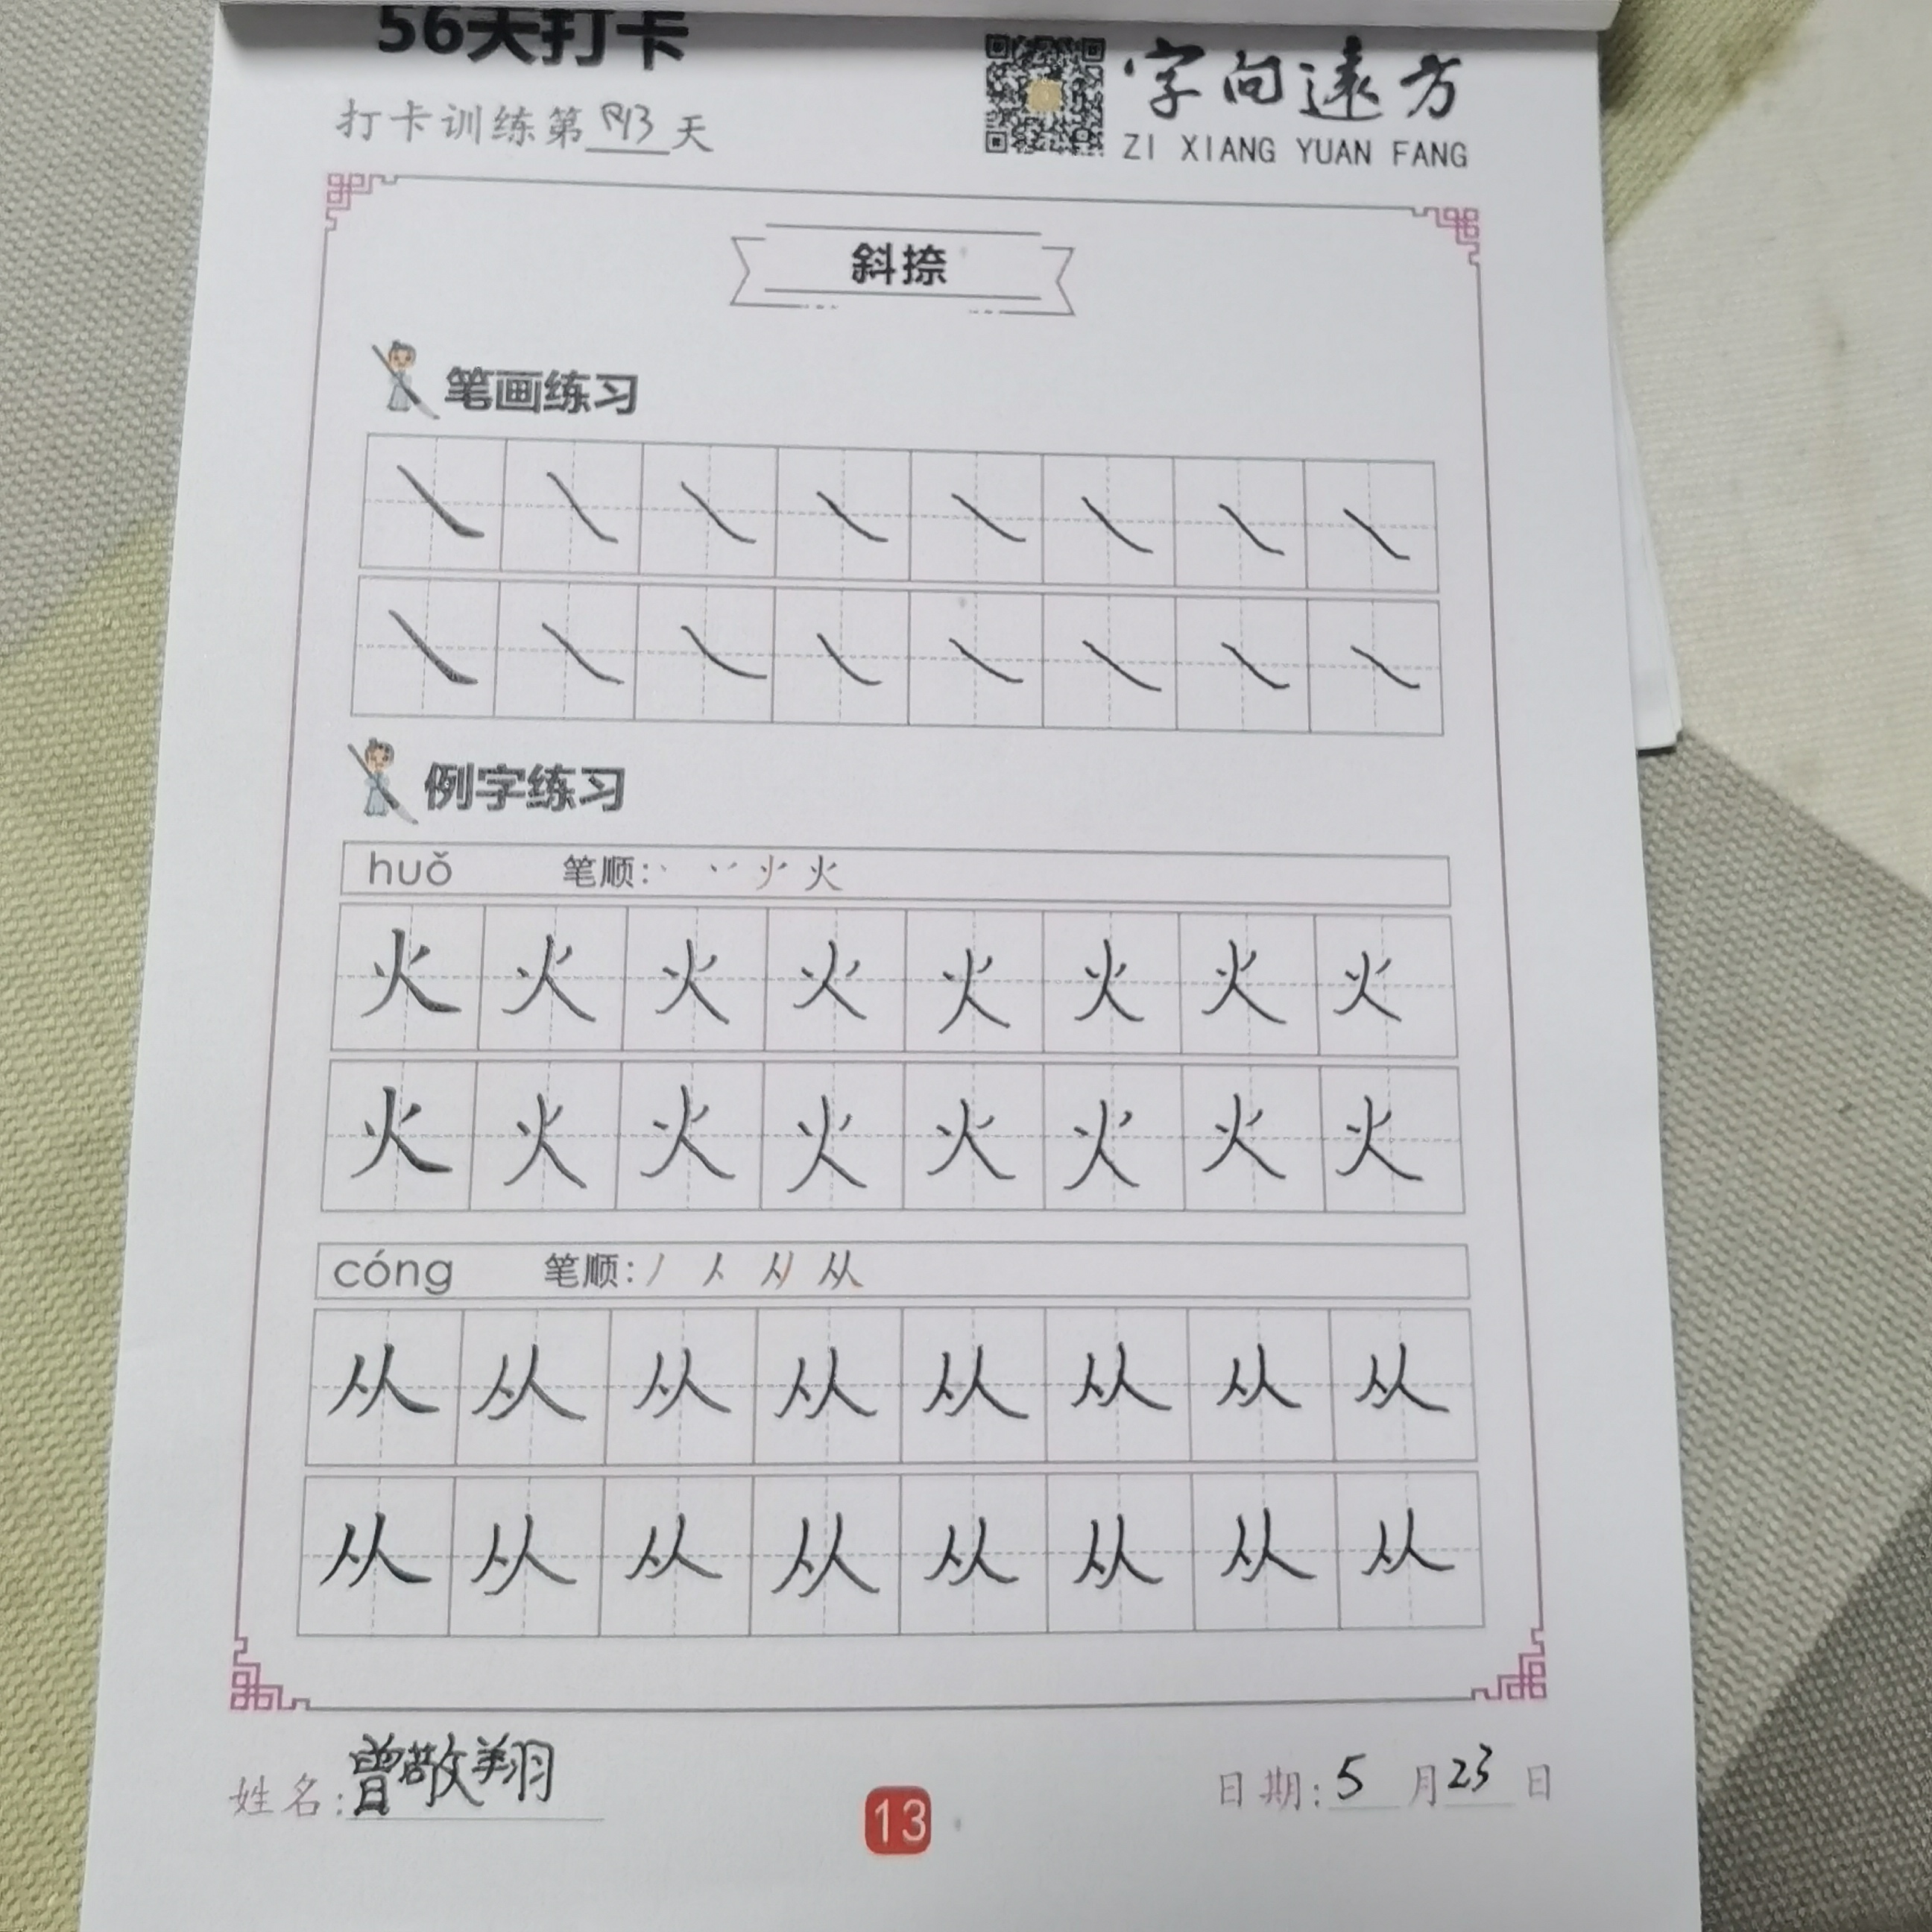 56天打卡
字向遠方
打卡训练第 天
ZI XIANG YUAN FANG
斜捺
笔画练习
㇏ ㇏ ㇏ ㇏ ㇏ ㇏ ㇏ ㇏
㇏ ㇏ ㇏ ㇏ ㇏ ㇏ ㇏ ㇏
例字练习
huǒ 笔顺: 火
火 火 火 火 火 火 火 火
火 火 火 火 火 火 火 火
cóng 笔顺: 丿 人 从
从 从 从 从 从 从 从 从
从 从 从 从 从 从 从 从
姓名: 曾敬翔
日期: 5 月 23 日
13